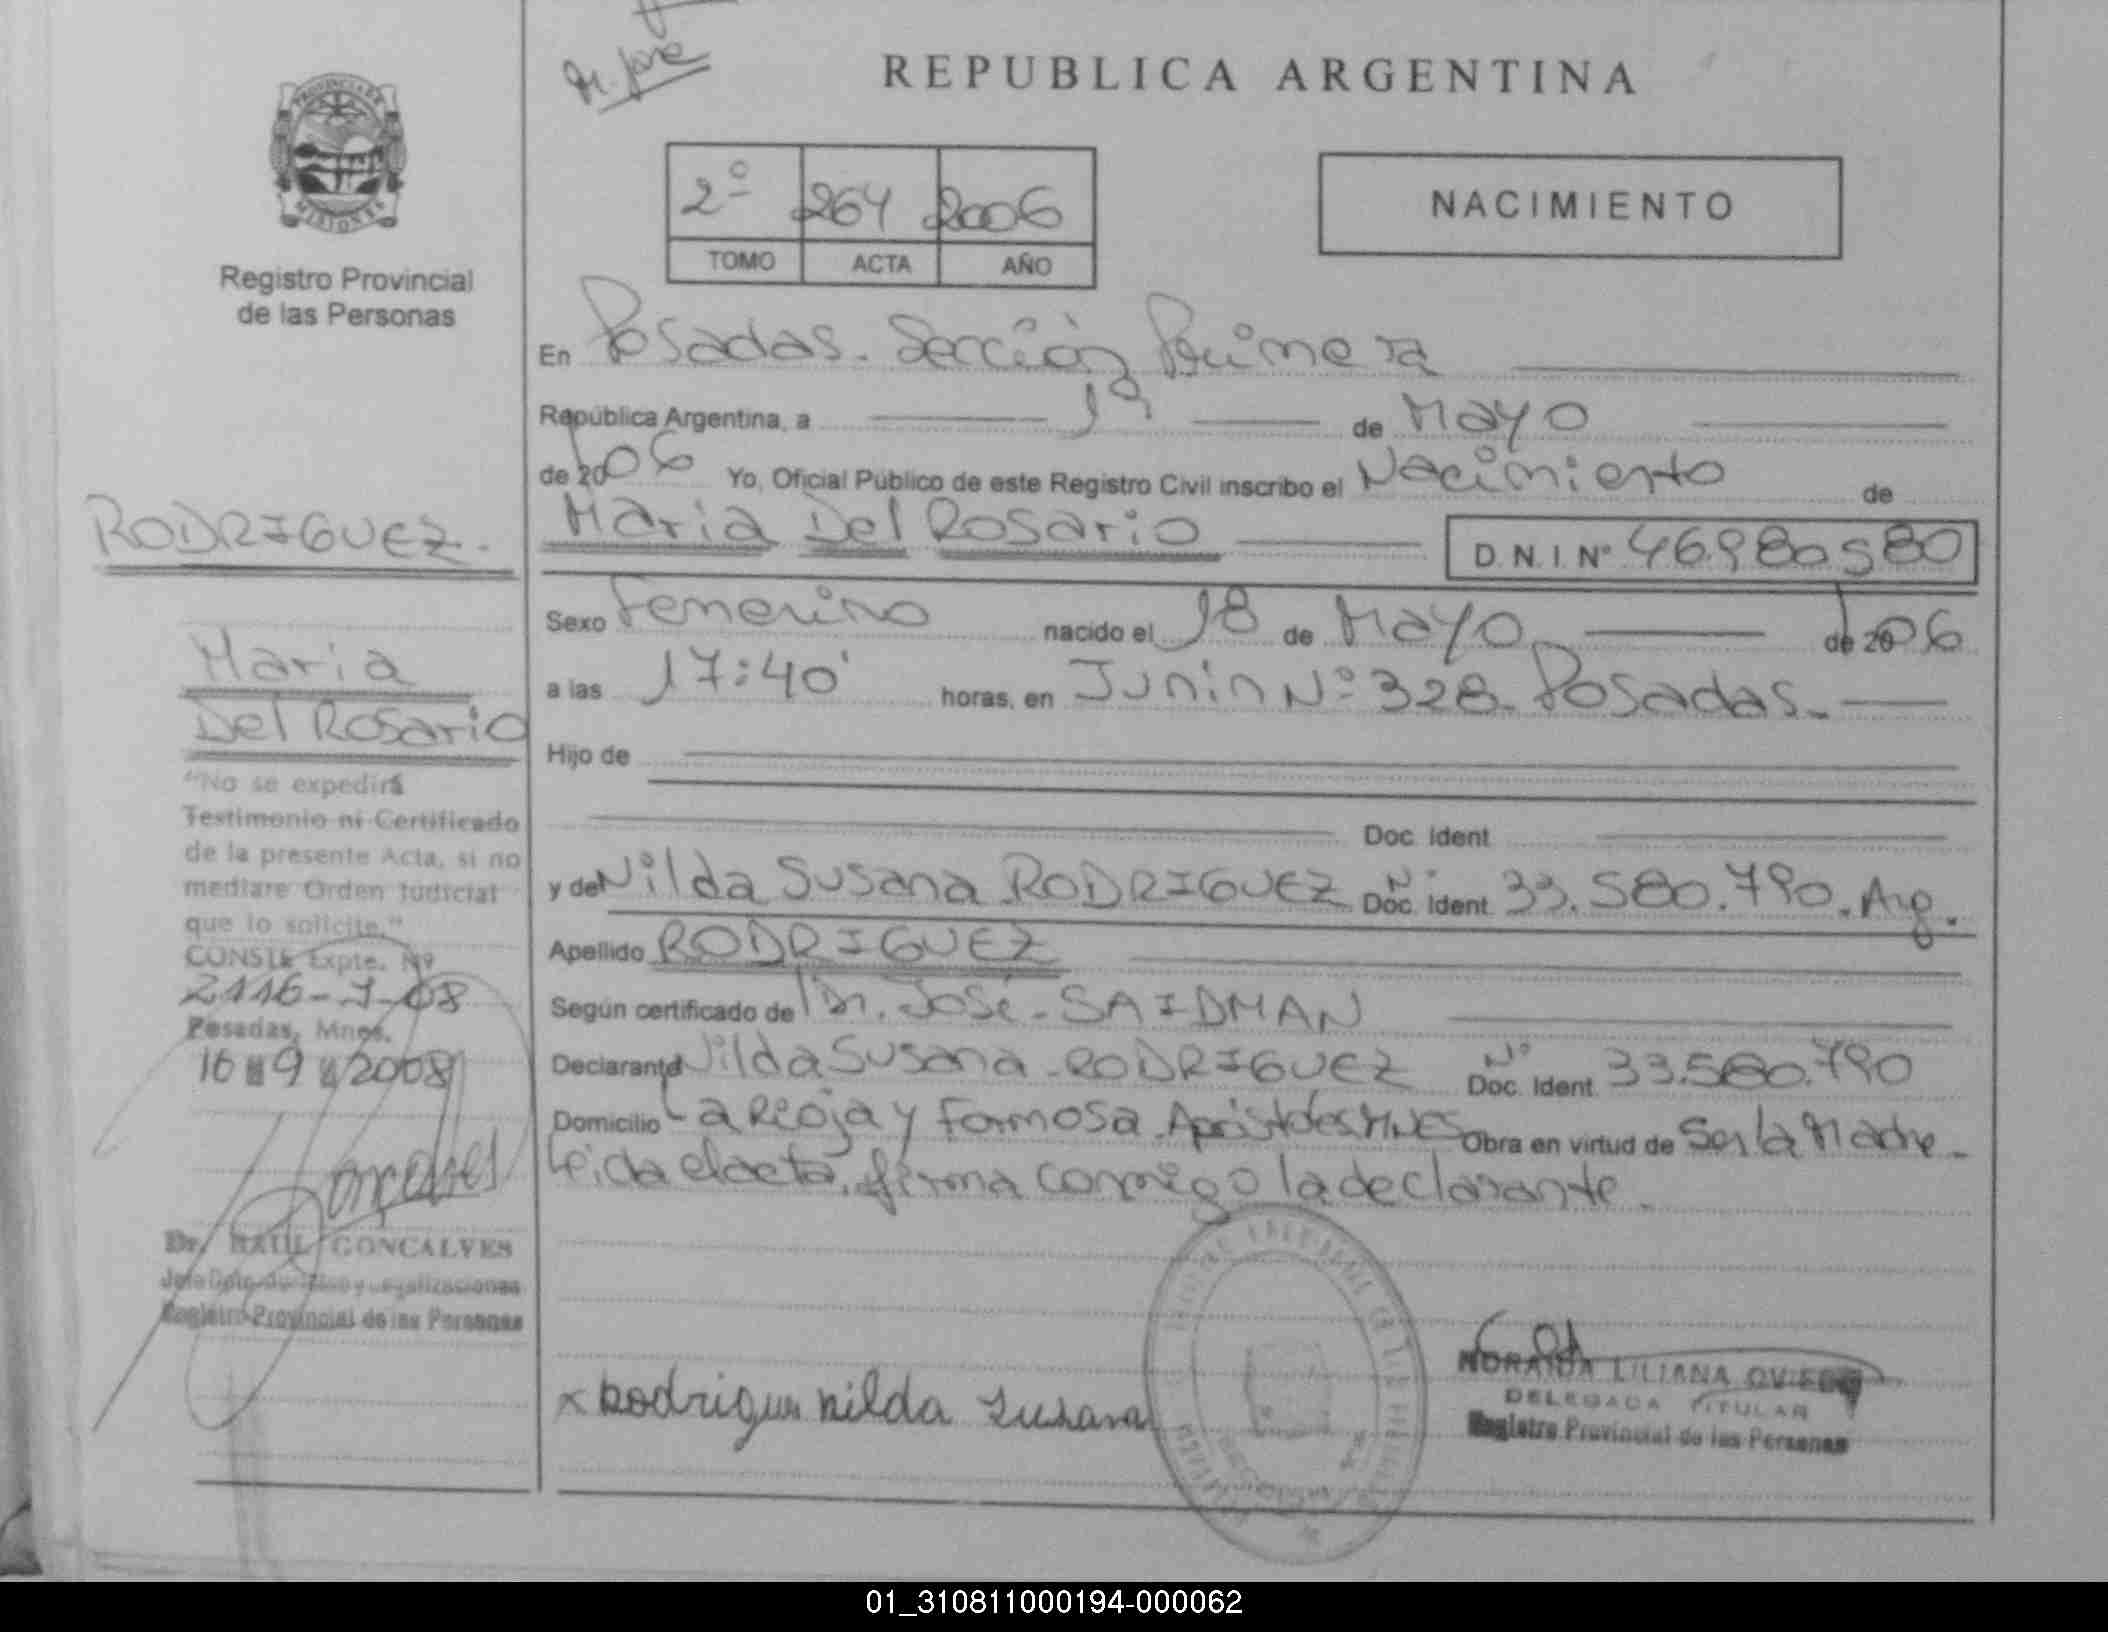 Dr. José
REPUBLICA ARGENTINA
PROVINCIA DE
MISIONES
Registro Provincial
de las Personas
2º 264 2006
TOMO ACTA AÑO
NACIMIENTO
En Posadas. Sección Primera
República Argentina, a 19 de Mayo
de 2006 Yo, Oficial Público de este Registro Civil inscribo el Nacimiento de
Maria Del Rosario D.N.I. Nº 46.980.580
Sexo Femenino nacido el 18 de Mayo de 2006
a las 17:40' horas, en Junin Nº 328. Posadas.
Hijo de
Doc. Ident
y de Nilda Susana RODRIGUEZ Nº Doc. Ident. 33.580.790. Arg.
Apellido RODRIGUEZ
Según certificado de Dr. José SAIDMAN
Declarante Nilda Susana RODRIGUEZ Nº Doc. Ident. 33.580.790
Domicilio La Rioja y Formosa. Obra en virtud de Ser la Madre.
Leida el acta, firma conmigo la declarante.
x Rodriguez Nilda Susana
NORAIDA LILIANA OVIEDO
DELEGADA TITULAR
Registro Provincial de las Personas
RODRIGUEZ.
Maria
Del Rosario
"No se expedirá
Testimonio ni Certificado
de la presente Acta, si no
mediare Orden Judicial
que lo solicite."
CONSTE Expte. Nº
2116-J-08
Posadas, Mnes.
16 9 2008
Dr. RAUL GONCALVES
Registro Provincial de las Personas
01_310811000194-000062